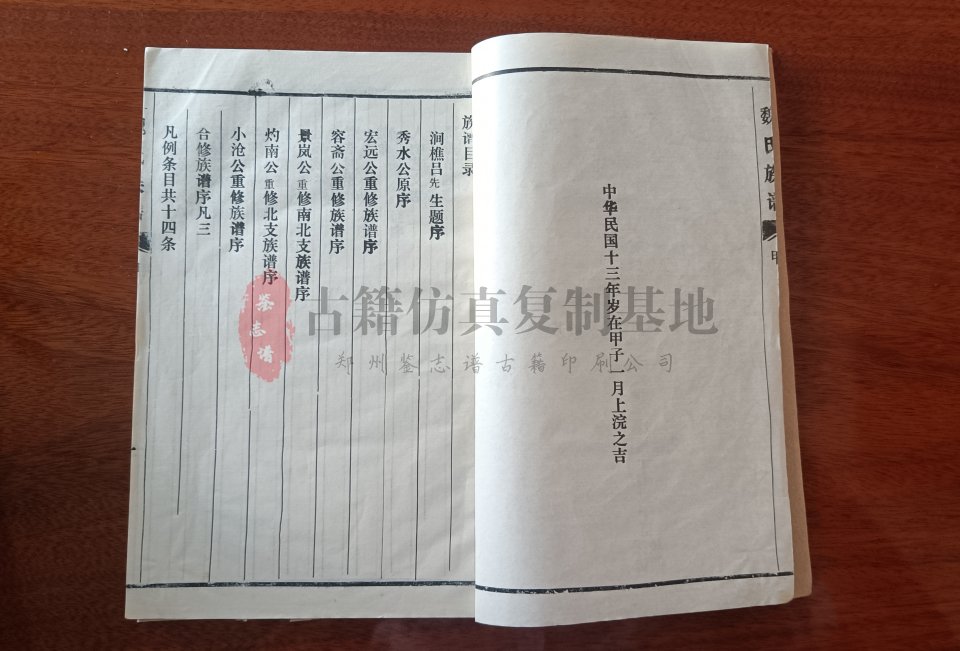 魏氏族谱
中华民国十三年岁在甲子一月上浣之吉
族谱目录
涧樵吕先生题序
秀水公原序
宏远公重修族谱序
容斋公重修族谱序
景岚公重修南北支族谱序
灼南公重修北支族谱序
小沧公重修族谱序
合修族谱序凡三
凡例条目共十四条
鉴志谱
古籍仿真复制基地
郑州鉴志谱古籍印刷公司